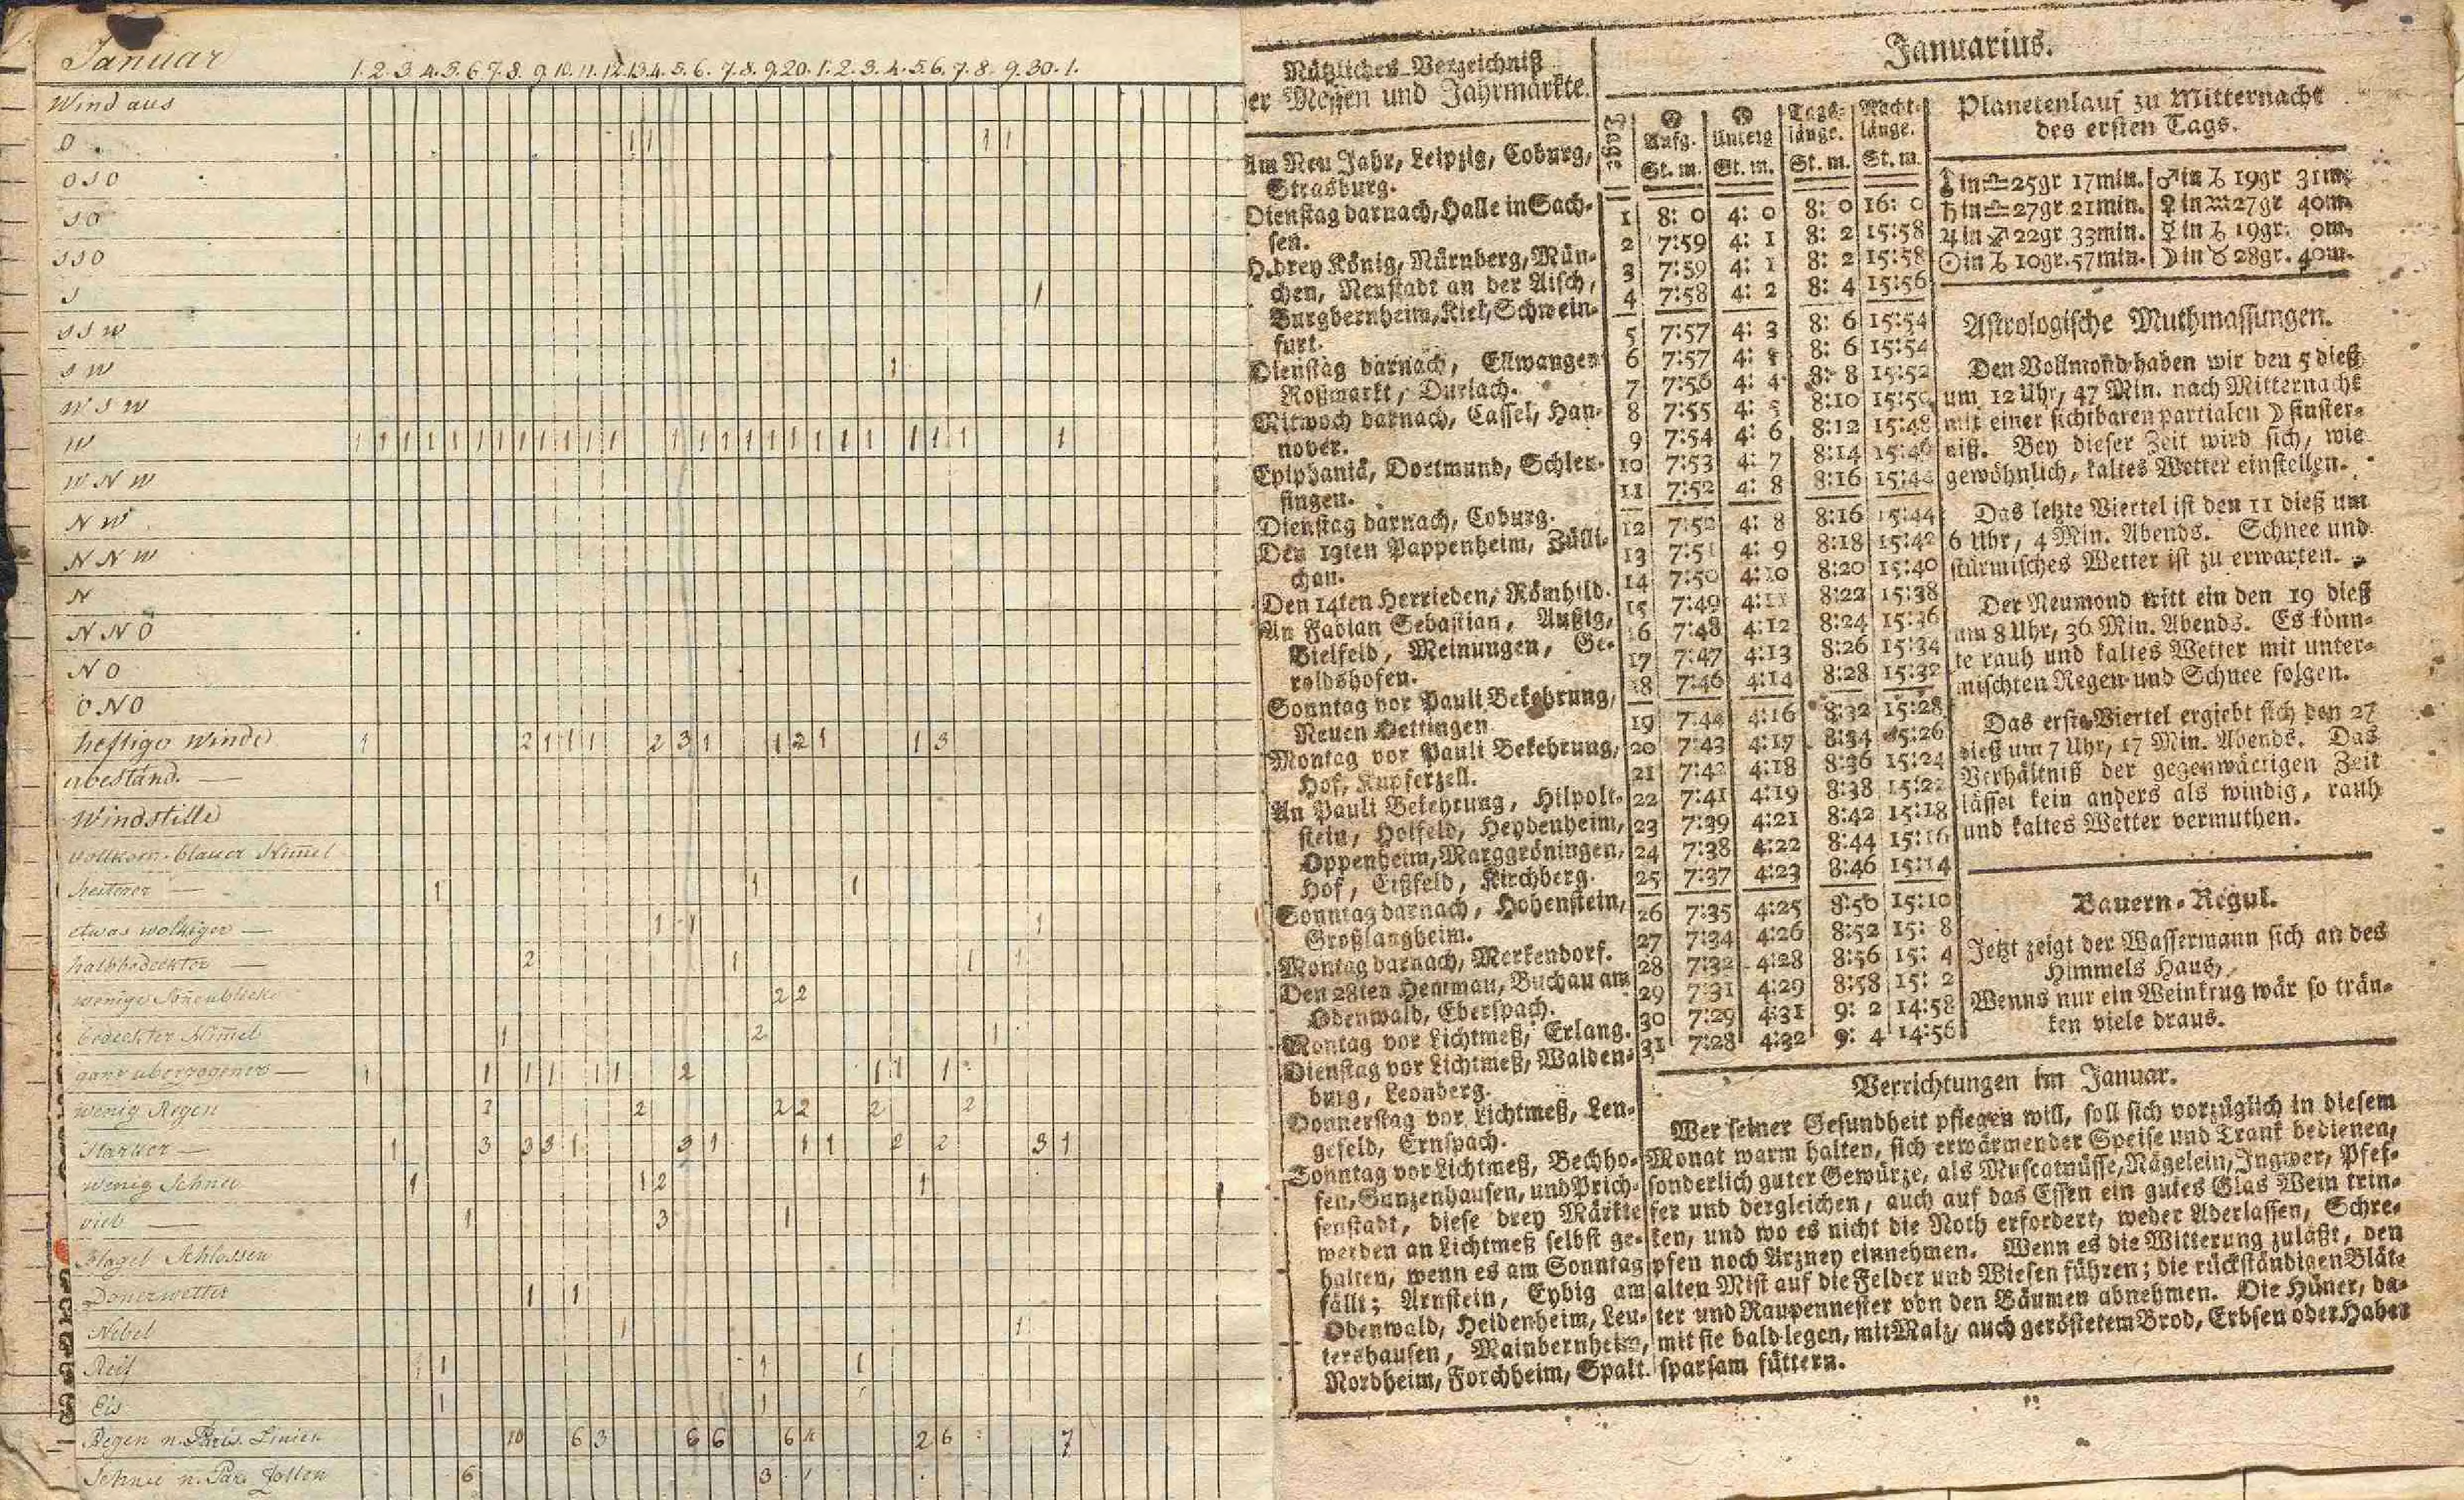 Januar
1. 2. 3. 4. 5. 6. 7. 8. 9. 10. 11. 12. 13. 4. 5. 6. 7. 8. 9. 20. 1. 2. 3. 4. 5. 6. 7. 8. 9. 30. 1.
Wind aus
O 1 1 1 1
O S O
S O
S S O
S 1
S S W
S W 1
W S W
W 1 1 1 1 1 1 1 1 1 1 1 1 1 1 1 1 1 1 1 1 1 1 1 1 1
W N W
N W
N N W
N
N N O
N O
O N O
heftige Winde 1 2 1 1 1 2 3 1 1 2 1 1 3
unbeständ. —
Windstille
vollkom. blauer Himel
heiterer — 1 1 1
etwas wolkiger — 1 1 1
halbbedeckter — 2 1 1 1
wenige Soneublicke 2 2
bedeckter Himel 1 2 1
ganz überzogener — 1 1 1 1 1 1 2 1 1 1
wenig Regen 2 2 2 2 2 2
Starker — 1 3 3 3 1 3 1 1 1 2 2 3 1
wenig Schnee 1 1 2 1
viel — 1 3 1
Hagel Schlossen
Donerwetter 1 1
Nebel 1 1
Reif 1 1 1 1
Eis 1 1
Regen n. Paris. Linien 10 6 3 6 6 6 2 6 7
Schnee n. Par. Zollen 6 3 1
Nützliches Verzeichniß
der Messen und Jahrmärkte.
Am Neu Jahr, Leipzig, Coburg,
Strasburg.
Dienstag darnach, Halle in Sach-
sen.
H. drey König, Nürnberg, Mün-
chen, Neustadt an der Aisch,
Burgbernheim, Kiel, Schwein-
furt.
Dienstag darnach, Ellwangen
Roßmarkt, Durlach.
Mitwoch darnach, Cassel, Han-
nover.
Epiphaniä, Dortmund, Schleu-
singen.
Dienstag darnach, Coburg.
Den 13ten Pappenheim, Zülli-
chau.
Den 14ten Herrieden, Römhild.
An Fabian Sebastian, Außig,
Bielfeld, Meinungen, Ge-
roldshofen.
Sonntag vor Pauli Bekehrung,
Neuen Oettingen
Montag vor Pauli Bekehrung,
Hof, Kupferzell.
An Pauli Bekehrung, Hilpolt-
stein, Holfeld, Heydenheim,
Oppenheim, Marggröningen,
Hof, Eißfeld, Kirchberg.
Sonntag darnach, Hohenstein,
Großlangheim.
Montag darnach, Merkendorf.
Den 28ten Hemmau, Buchau am
Odenwald, Eberspach.
Montag vor Lichtmeß, Erlang.
Dienstag vor Lichtmeß, Walden-
burg, Leonberg.
Donnerstag vor Lichtmeß, Len-
gefeld, Ernspach.
Sonntag vor Lichtmeß, Bechho-
fen, Gunzenhausen, und Prich-
senstadt, diese drey Märkte
werden an Lichtmeß selbst ge-
halten, wenn es am Sonntag
fällt; Arnstein, Eybig am
Odenwald, Heidenheim, Leu-
tershausen, Mainbernheim,
Nordheim, Forchheim, Spalt.
Januarius.
Tage ☉ Aufg. ☉ Unterg Tags-länge. Nacht-länge.
St. m. St. m. St. m. St. m.
1 8: 0 4: 0 8: 0 16: 0
2 7:59 4: 1 8: 2 15:58
3 7:59 4: 1 8: 2 15:58
4 7:58 4: 2 8: 4 15:56
5 7:57 4: 3 8: 6 15:54
6 7:57 4: 8: 6 15:54
7 7:56 4: 4 8: 8 15:52
8 7:55 4: 5 8:10 15:50
9 7:54 4: 6 8:12 15:48
10 7:53 4: 7 8:14 15:46
11 7:52 4: 8 8:16 15:44
12 7:52 4: 8 8:16 15:44
13 7:51 4: 9 8:18 15:42
14 7:50 4:10 8:20 15:40
15 7:49 4:11 8:22 15:38
16 7:48 4:12 8:24 15:36
17 7:47 4:13 8:26 15:34
18 7:46 4:14 8:28 15:32
19 7:44 4:16 8:32 15:28
20 7:43 4:17 8:34 15:26
21 7:42 4:18 8:36 15:24
22 7:41 4:19 8:38 15:22
23 7:39 4:21 8:42 15:18
24 7:38 4:22 8:44 15:16
25 7:37 4:23 8:46 15:14
26 7:35 4:25 8:50 15:10
27 7:34 4:26 8:52 15: 8
28 7:32 4:28 8:56 15: 4
29 7:31 4:29 8:58 15: 2
30 7:29 4:31 9: 2 14:58
31 7:28 4:32 9: 4 14:56
Planetenlauf zu Mitternacht
des ersten Tags.
in ♎ 25gr 17min. ♂ in ♑ 19gr 31m.
♄ in ♎ 27gr 21min. ♀ in ♒ 27gr 40m.
♃ in ♐ 22gr 33min. ☿ in ♑ 19gr. 0m.
☉ in ♑ 10gr. 57min. ☽ in ♉ 28gr. 40m.
Astrologische Muthmassungen.
Den Vollmond haben wir den 5 dieß
um 12 Uhr, 47 Min. nach Mitternacht
mit einer sichtbaren partialen ☽ finster-
niß. Bey dieser Zeit wird sich, wie
gewöhnlich, kaltes Wetter einstellen.
Das letzte Viertel ist den 11 dieß um
6 Uhr, 4 Min. Abends. Schnee und
stürmisches Wetter ist zu erwarten.
Der Neumond tritt ein den 19 dieß
um 8 Uhr, 36 Min. Abends. Es könn-
te rauh und kaltes Wetter mit unter-
mischten Regen und Schnee folgen.
Das erste Viertel ergiebt sich den 27
dieß um 7 Uhr, 17 Min. Abends. Das
Verhältniß der gegenwärtigen Zeit
lässet kein anders als windig, rauh
und kaltes Wetter vermuthen.
Bauern-Regul.
Jetzt zeigt der Wassermann sich an des
Himmels Haus,
Wenns nur ein Weinkrug wär so trän-
ken viele draus.
Verrichtungen im Januar.
Wer seiner Gesundheit pflegen will, soll sich vorzüglich in diesem
Monat warm halten, sich erwärmender Speise und Trank bedienen,
sonderlich guter Gewürze, als Muscatnüsse, Nägelein, Ingwer, Pfef-
fer und dergleichen, auch auf das Essen ein gutes Glas Wein trin-
ken, und wo es nicht die Noth erfordert, weder Aderlassen, Schre-
pfen noch Arzney einnehmen. Wenn es die Witterung zuläßt, den
alten Mist auf die Felder und Wiesen führen; die rückständigen Blät-
ter und Raupennester von den Bäumen abnehmen. Die Hüner, da-
mit sie bald legen, mit Malz, auch geröstetem Brod, Erbsen oder Haber
sparsam füttern.